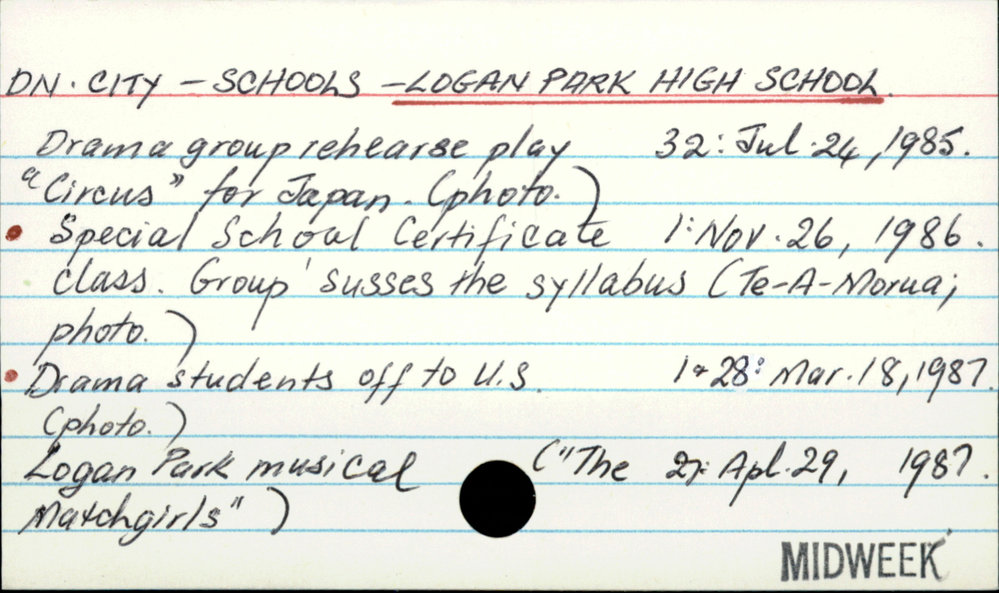 DN. CITY – SCHOOLS – LOGAN PARK HIGH SCHOOL.
Drama group rehearse play 32: Jul. 24, 1985.
"Circus" for Japan. (photo.)
Special School Certificate 1: Nov. 26, 1986.
class. Group 'susses the syllabus (Te-A-Morua;
photo.)
Drama students off to U.S. 1+28: Mar. 18, 1987.
(photo.)
Logan Park musical ("The 27: Apl. 29, 1987.
Matchgirls")
MIDWEEK